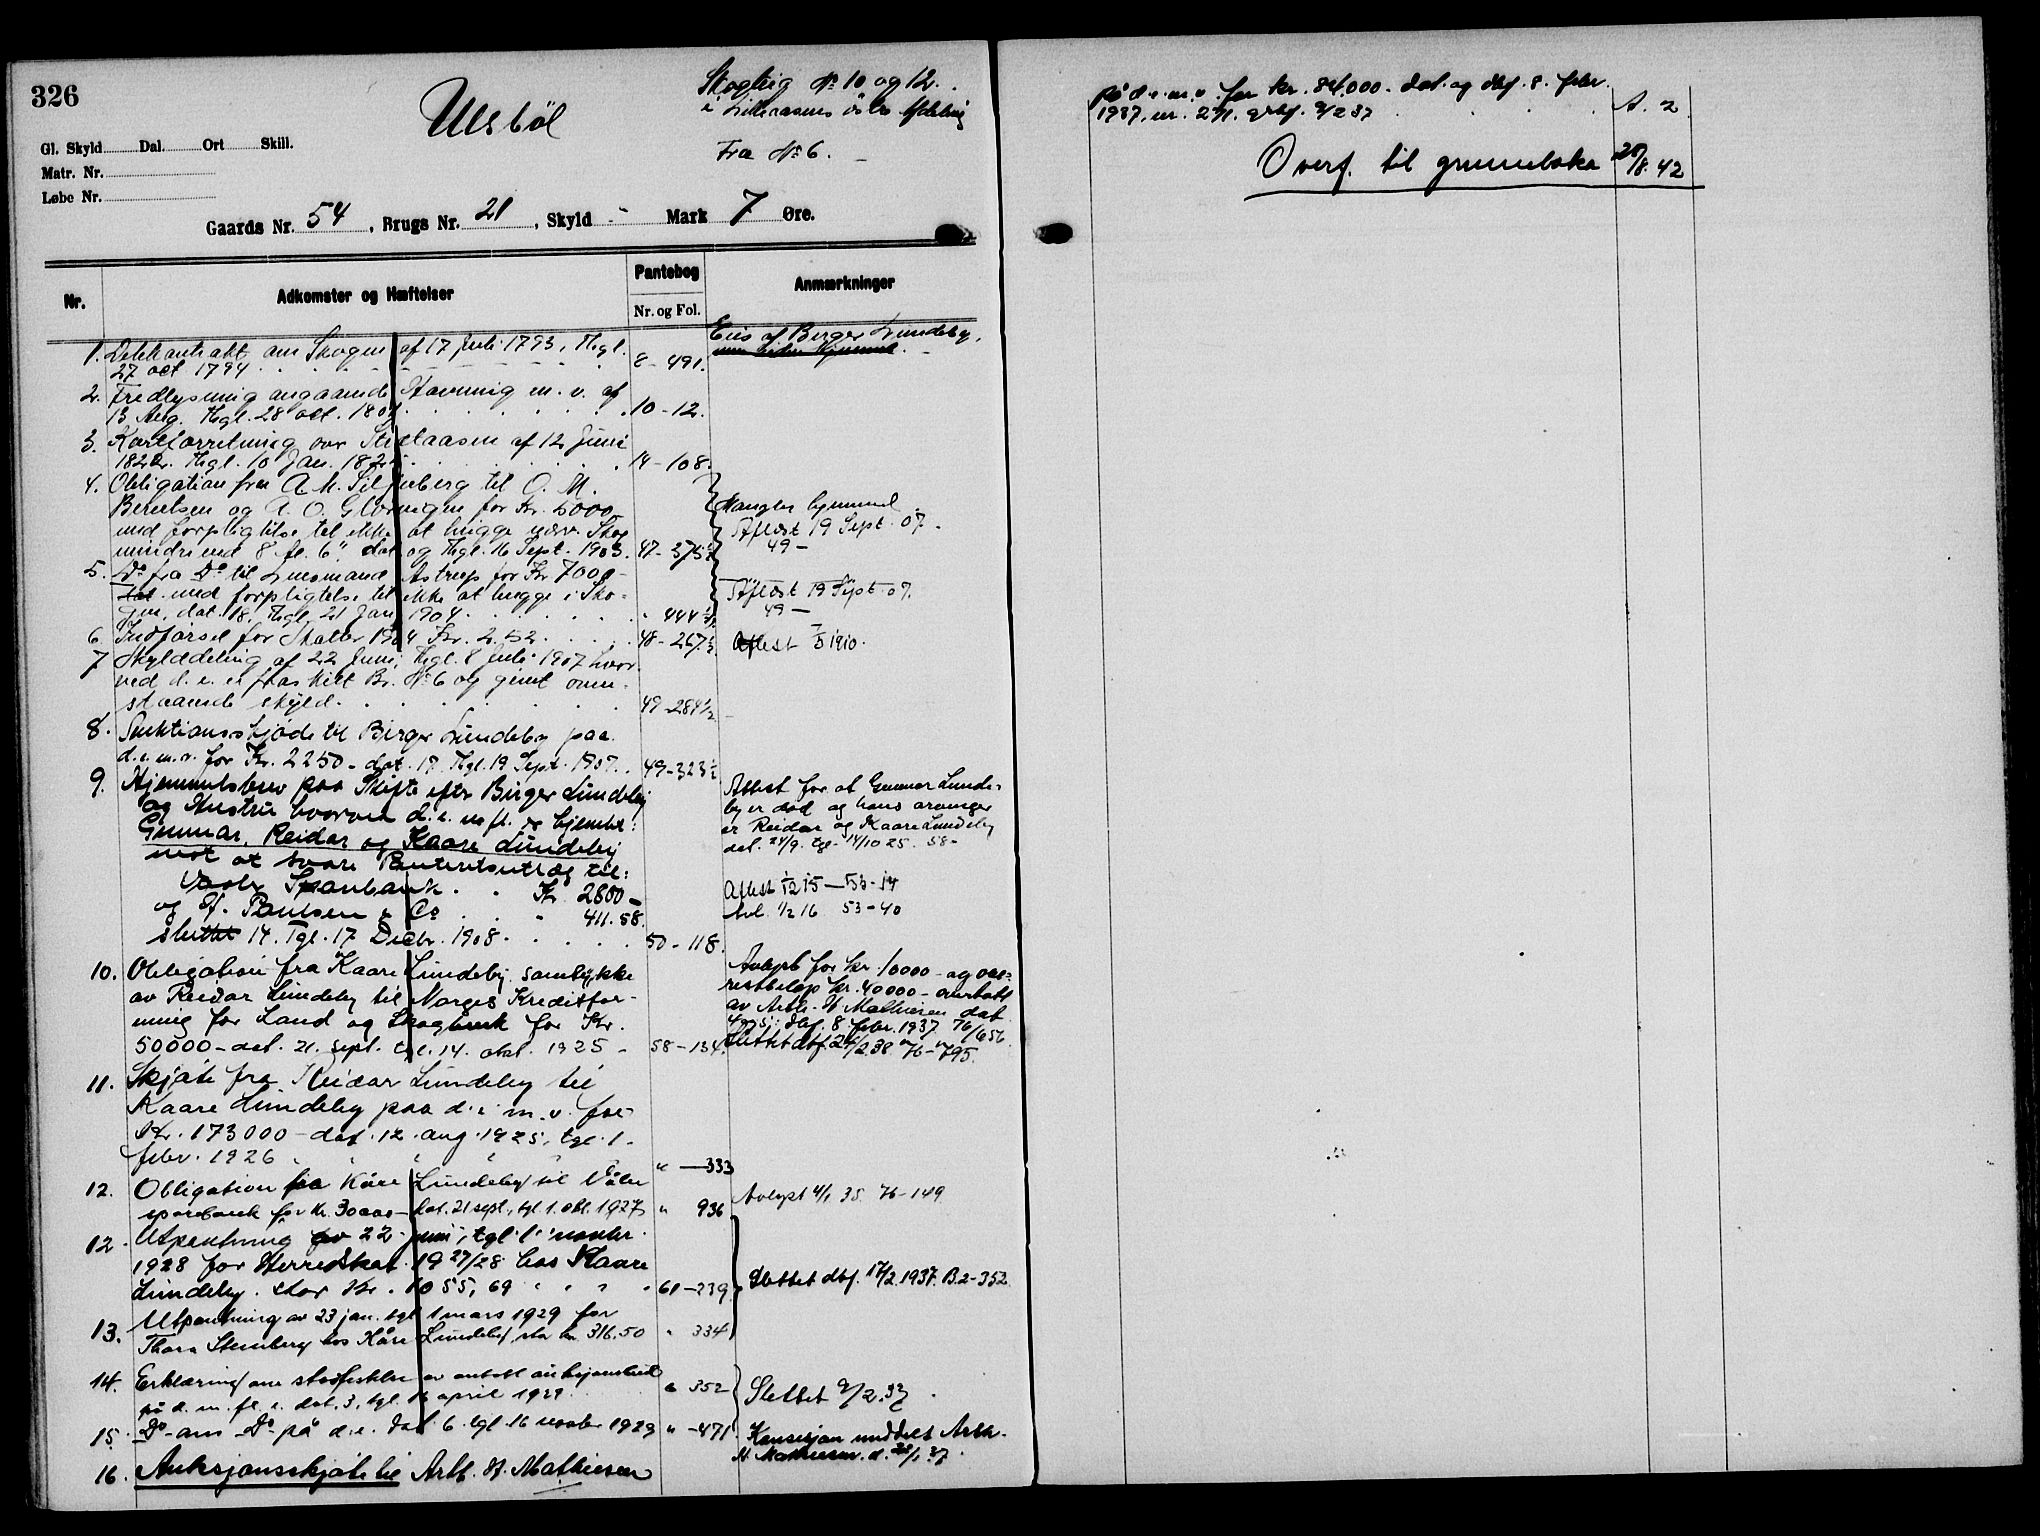 326
Ulsböl
Skogteig № 10 og 12.
i Lilleaasens östre Afdeling
Fra № 6. –
Gl. Skyld Dal. Ort Skill.
Matr. Nr.
Løbe Nr.
Gaards Nr. 54, Brugs Nr. 21, Skyld - Mark 7 Øre.
Nr. Adkomster og Hæftelser Pantebog Anmærkninger
Nr. og Fol.
Eies af Birger Lundeby,
1. Delekontrakt om Skogen af 17 Juli 1793, Thgl.
27 oct 1794 8-491.
2. Fredlysning angaaende Havning m. v. af
13 Aug. Thgl. 28 oct. 10-12.
3. Kartforretning over af 12 Juni
Thgl. 10 Jan. 14-108.
4. Obligation fra A. M. til O. M.
Berntsen og A. O. for Kr. 5000
med forpligtelse til ikke at hugge Skog
mindre end 8 fl. 6" dat. og Thgl. 16 Sept. 1903. 47-375½
Mangler hjemmel
Aflæst 19 Sept. 07.
49 –
5. Do fra Do til Lensmand Astrup for Kr 7000
med forpligtelse til ikke at hugge i Sko-
gen, dat. 18, Thgl. 21 Jan 1904 444½
Aflæst 19 Sept. 07.
49 –
6. Indførsel for Skatter Kr. 2.52 48-267½
Aflest 1910.
7 Skylddeling af 22 Juni, Thgl. 8 Juli 1907 hvor-
ved d. e. er fraskilt Br. № 6 og givet oven-
staaende skyld. 49-284½
8. Auktionsskjøde til Birger Lundeby paa
d. e. m. v. for Kr. 2250 – dat. 17 Thgl. 19 Sept. 1907. 49-323½
9. Hjemmelsbrev paa Skifte efter Birger Lundeby
og Hustru hvorved d. e. m. fl. er hjemlet:
Gunnar, Reidar og Kaare Lundeby
mot at svare Panteretsutlæg til:
Vaaler Sparebank Kr. 2800 –
og H. Paulsen & Co 411.58.
sluttet 14. Tgl. 17 Decbr. 1908. 50-118.
Attest for at Gunnar Lunde-
by er död og hans arvinger
er Reidar og Kaare Lundeby
dat. 24/9. tgl. 14/10 25. 58-
Aflest 53-14
Avl. 1/2 16 53-40
10. Obligation fra Kaare Lundeby samtykke
av Reidar Lundeby til Norges Kreditfor-
ening for Land og Skogbruk for Kr.
50000 – dat. 21. sept. tgl. 14. okt. 1925 – 58-134.
Avlyst for kr. 10000 – og
restbeløp kr. 40000 – overtatt
av Arth. H. Mathiesen dat.
dbf. 8. febr. 1937. 76/656.
Slettet dbf. 38 76-795.
11. Skjøte fra Reidar Lundeby til
Kaare Lundeby paa d. e. m. v. for
Kr. 173000 – dat. 12. aug. 1925, tgl. 1.
febr. 1926 " – 333
12. Obligation fra Kåre Lundeby til Våler
sparebank for kr. 30000 – dat. 21 sept., tgl. 1. okt. 1927 " 936
Avlyst 4/1 35 76-149
12. Utpantning av 22. juni, tgl. 1. novbr.
1928 for Herredskat 1927/28 hos Kaare
Lundeby. stor Kr. 1055,69 61-239
Slettet dbf. 17/2.1937. B.2-352.
13. Utpantning av 23 jan. tgl 1 mars 1929 for
Thora Stenberg hos Kåre Lundeby stor kr. 316.50 " 334
14. Erklæring om stadfestelse av
på d. m. fl. e. dat. 3, tgl. april 1929 " 352
Slettet 9/2.37.
15. Do om Do på d. e. dat. 6. tgl. 16 novbr 1929 " – 471
Konsesjon meddelt Arth.
H. Mathiesen. d. 37.
16. Auksjonsskjøte til Arth. H. Mathiesen
på d. e. m. v. for kr. 84.000 – dat. og dbf. 8. febr.
1937. nr. 271. 9/2 37 A. 2
Overf. til grunnboka 20/8. 42